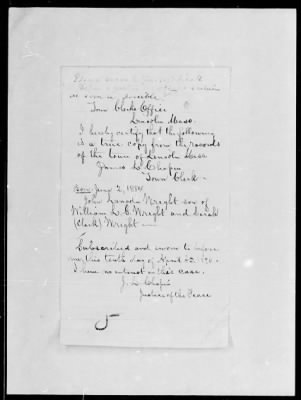 as soon as possible
Town Clerks Office
Lincoln Mass.
I hereby certify that the following
is a true copy from the records
of the town of Lincoln Mass
James L. Chapin
Town Clerk
Born June 2, 
John Lincoln Wright son of
William L. C. Wright and Sarah
(Clark) Wright
Subscribed and sworn to before
me, this tenth day of April
I have no interest in this case.
J. L. Chapin
Justice of the Peace
5